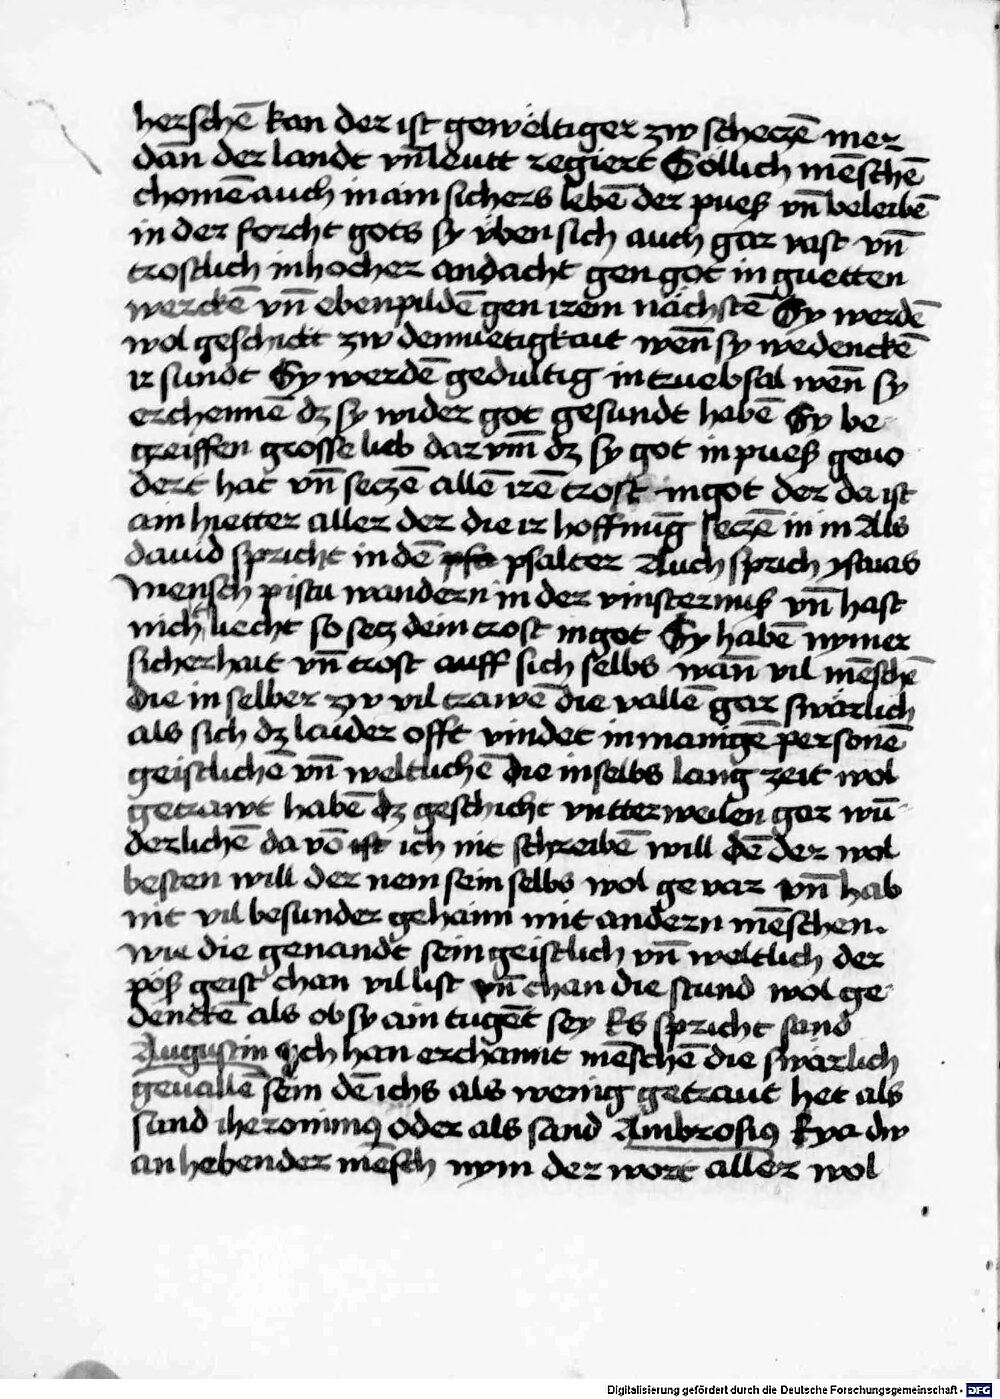 herschē kan der ist geweltiger zw scheczē mer
dān der landt vn̄ leutt regiert Sollich mēschē
chomē auch in ain sichers lebē der pueß vn̄ beleibē
in der forcht gots sy v̈ben sich auch gar vast vn̄
trostlich in hocher andacht gen got in guetten
werckē vn̄ ebenpildē gen irem nächstē Sy werdē
wol geschickt zw demuetigkait wen̄ sy wedenckē
ir sundt Sy werdē gedultig in truebsal wen̄ sy
erchennē dz sy wider got gesundt habē Sy be
greiffen grosse lieb dar vm̄ dz sy got in pueß geuo
dert hat vn̄ seczē allē irē trost in got der da ist
ain hietter aller der die ir hoffnūg seczē in in Als
dauid spricht in dē psalter Auch sprich ysaias
Mensch pistu wandern in der vinsternuß vn̄ hast
nicht liecht so secz dein trost in got Sy habē nymer
sicherhait vn̄ trost auff sich selbs wan̄ vil mēschē
die in selber zw vil trawē die vallē gar swärlich
als sich dz laider offt vindet in manigē personē
geistlichē vn̄ weltlichē die in selbs lang zeit wol
getrawt habē dz geschicht vntterweilen gar wū
derlichē da vō ich nit schreibē will dē der wol
besten will der nem sein selbs wol gevar vn̄ hab
nit vil besunder gehaim mit andern mēschen.
wie die genandt sein geistlich vn̄ weltlich der
pöß geist chan vil list vn̄ chan die stund wol ge
denckē als ob sy ain tugēt sey Es spricht sand
Augustin Ich han erchannt mēschē die swärlich
geuallē sein dē ichs als wenig getraut het als
sand iheronimus oder als sand Ambrosius Eya dw
an hebender mēsch nym der wort aller wol
Digitalisierung gefördert durch die Deutsche Forschungsgemeinschaft - DFG